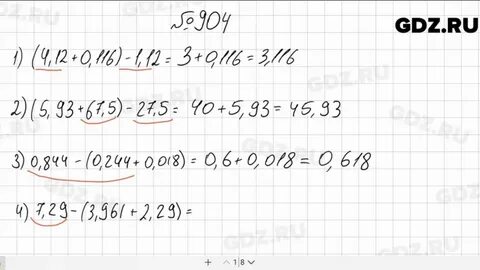 №904
GDZ.RU
1) (4,12+0,116)-1,12= 3+0,116=3,116
2) (5,93+67,5)-27,5= 40+5,93=45,93
3) 0,844-(0,244+0,018)=0,6+0,018=0,618
4) 7,29-(3,961+2,29)=
+ 1 8